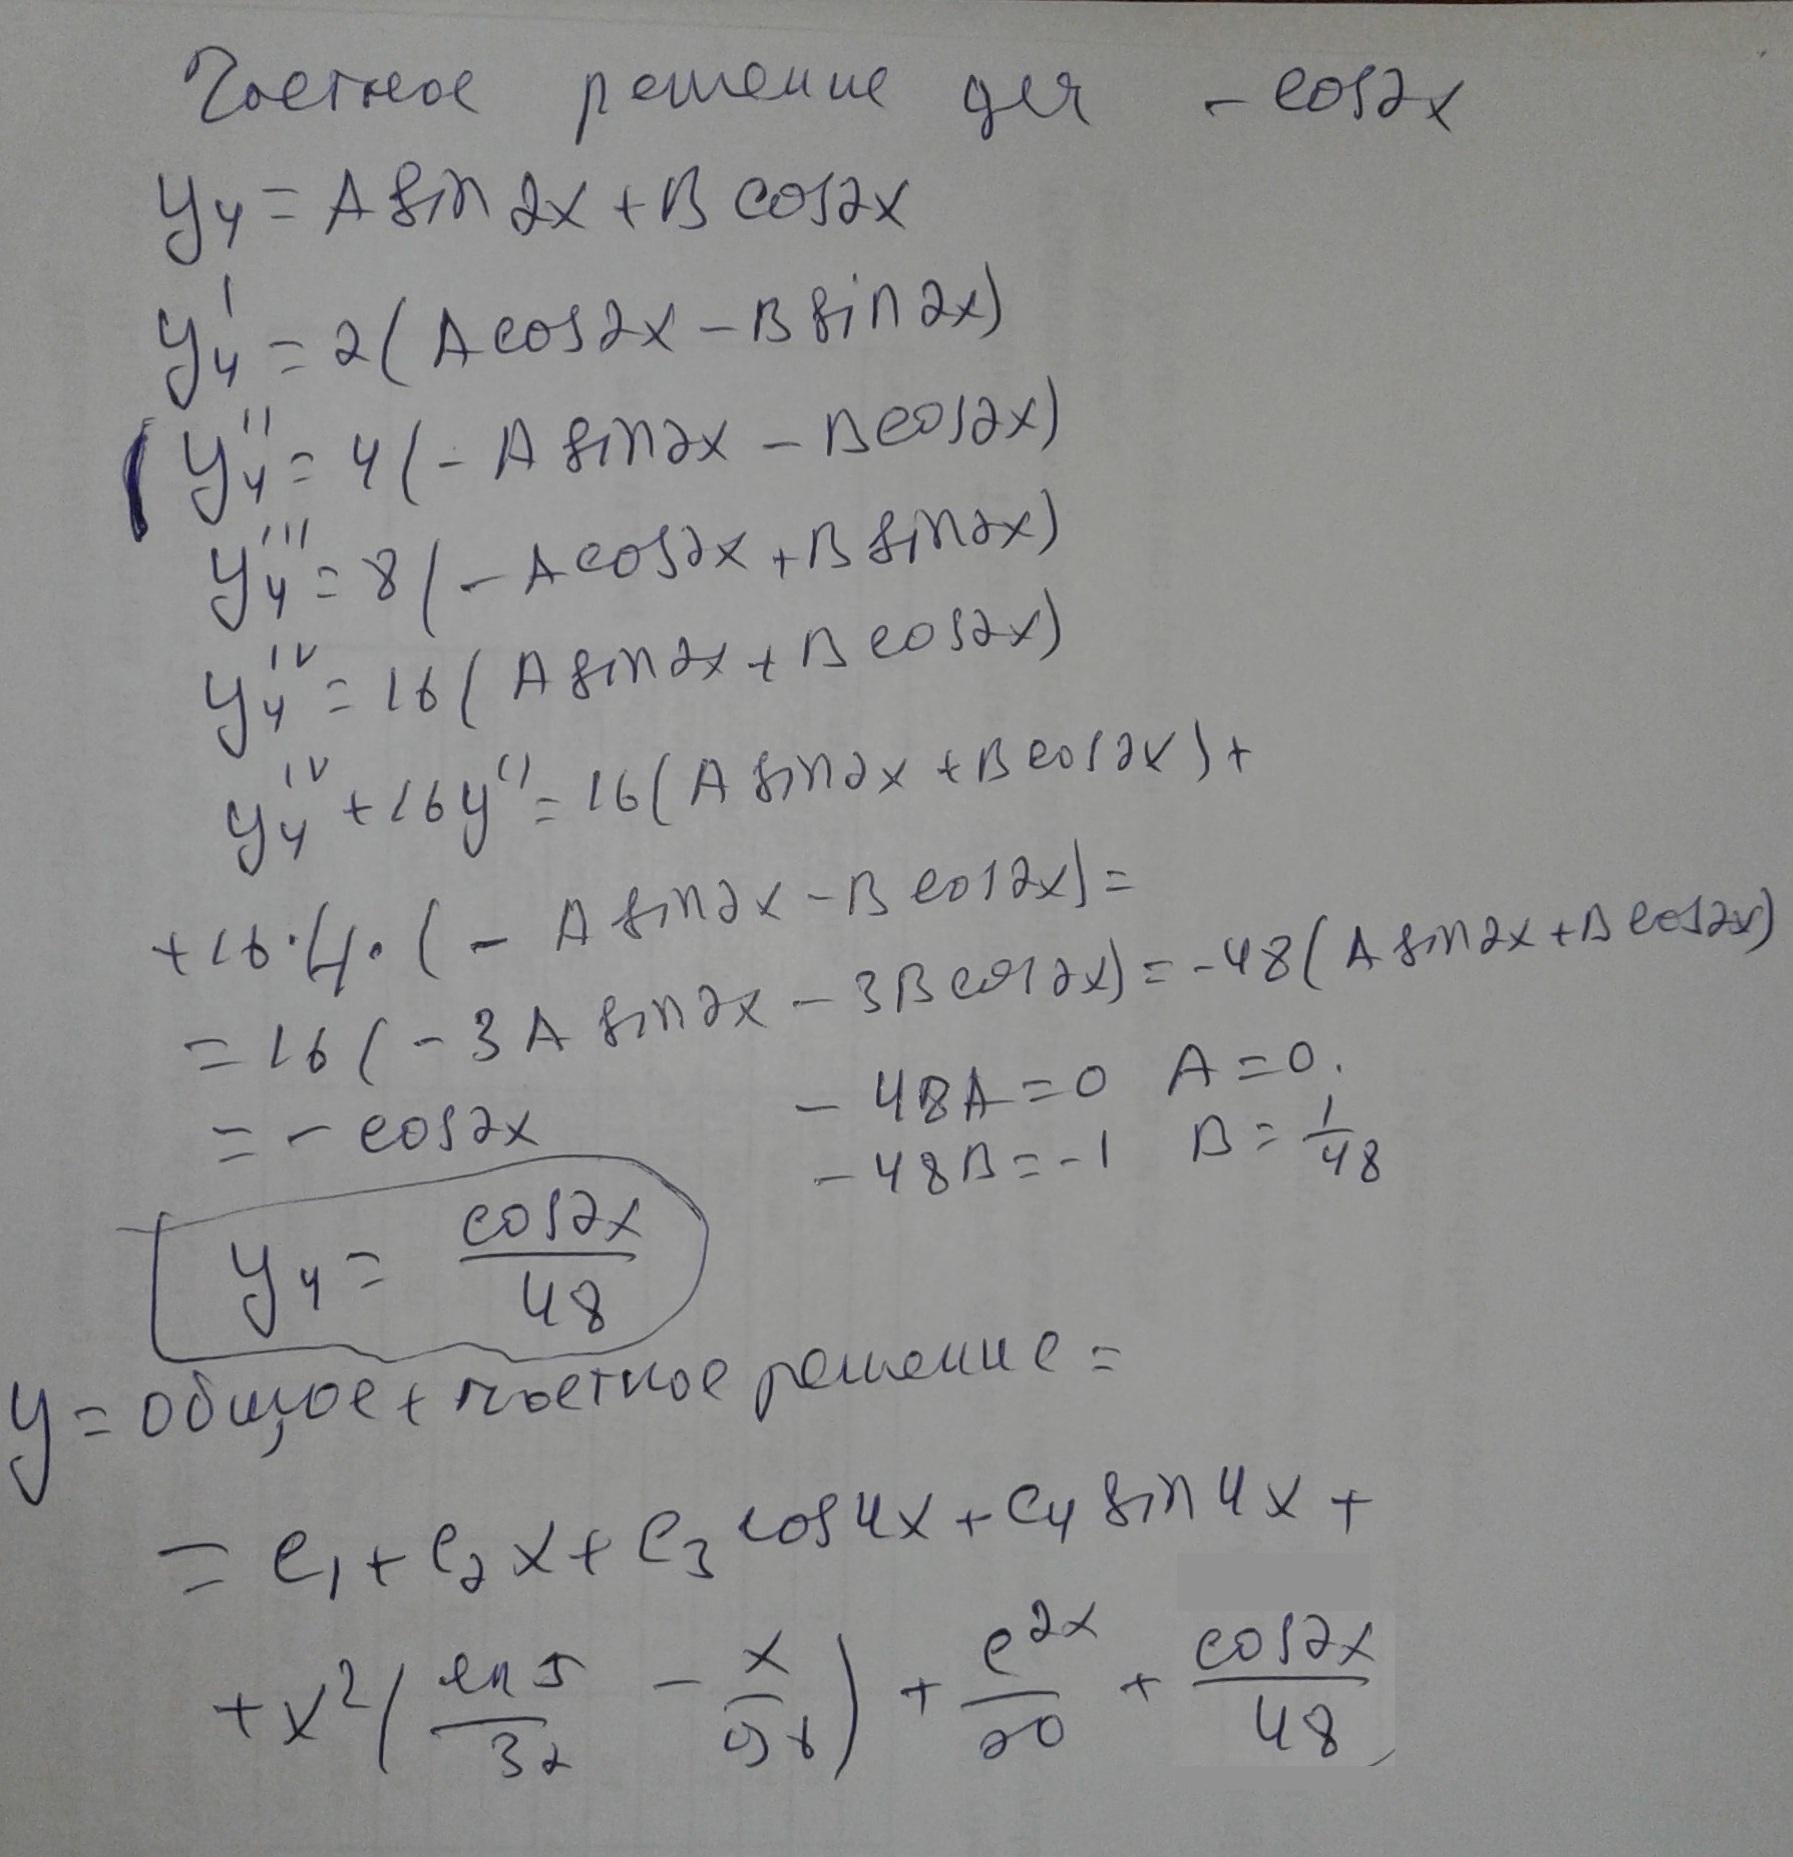 Частное решение для - cos2x
y₄ = A sin 2x + B cos2x
y₄' = 2(A cos2x - B sin 2x)
y₄'' = 4(- A sin2x - B cos2x)
y₄''' = 8(- A cos2x + B sin2x)
y₄ᴵⱽ = 16(A sin2x + B cos2x)
y₄ᴵⱽ + 16y'' = 16(A sin2x + B cos2x) +
+ 16·4·(- A sin2x - B cos2x) =
= 16(- 3A sin2x - 3B cos2x) = -48(A sin2x + B cos2x)
= - cos2x
- 48A = 0 A = 0.
- 48B = -1 B = 1/48
y₄ = cos2x/48
y = общое + частное решение =
= c₁ + c₂x + c₃ cos4x + c₄ sin4x +
+ x²(ln5/32 - x/96) + e²ˣ/20 + cos2x/48